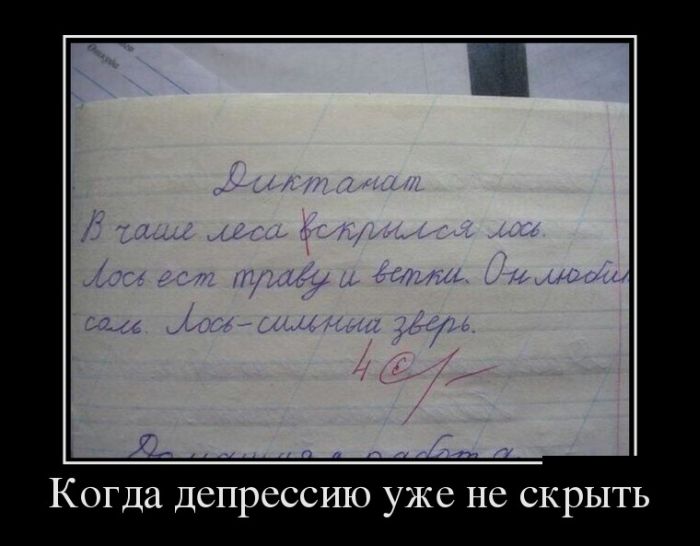 Откуда
Диктанат
В чаше леса вскрылся лось.
Лось ест траву и ветки. Он люби
соль. Лось-сильныи зверь.
4
Домашняя работа
Когда депрессию уже не скрыть